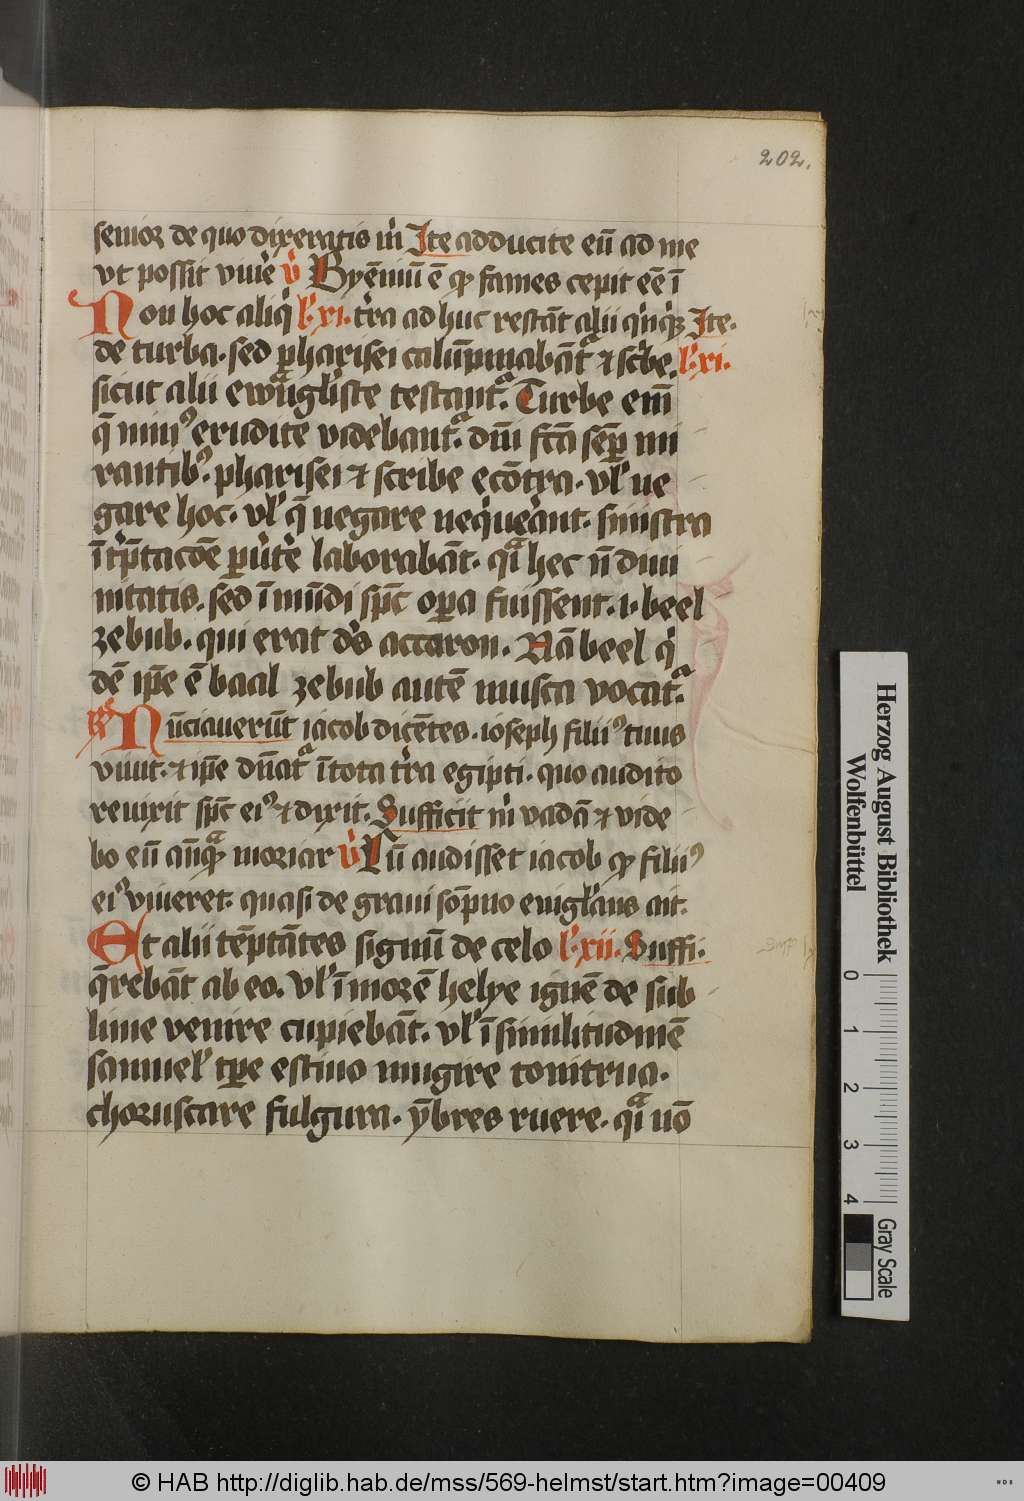 202.
senior de quo dixeratis m̄ Ite adducite eū ad me
vt possit viuē v̄ Byēniū ē qꝫ fames cepit eē ī
Non hoc aliq̄ l' xi. tr̄a ad huc restāt alii q̄nq̄ꝫ Ite.
de turba. sed pharisei calūpniabāt᷑ ⁊ sc̄be. l' xi.
sicut alii ewāgl̄iste testant᷑. Turbe em̄
q̄ min⁹ erudite videbant᷑. dn̄i fc̄a semꝑ mi
rantib⁹. pharisei ⁊ scribe ecōtra. vl' ne
gare hoc. vl' q̄ negare neq̄uerāt. sinistra
īt̄p̄tacōe ꝑūtē laborabāt. qᷓi hec nō diui
nitatis. sed īmūdi sp̄c oꝑa fuissent. .i. beel
zebub. qui erat d̄s accaron. Nā beel q̄
dē ip̄e ē baal zebub autē musca vocat᷑.
Rē Nūciauerūt iacob dicētes. ioseph fili⁹ tuus
viuit. ⁊ ip̄e dn̄at᷑ ī tota tr̄a egipti. quo audito
reuixit sp̄c ei⁹ ⁊ dixit. Sufficit m̄ vadā ⁊ vide
bo eū anq̄ꝫ moriar v̄ Cū audisset iacob qꝫ fili⁹
ei⁹ viueret. quasi de graui sōpno euigl̄ans ait.
Et alii tēptātes signū de celo l' xii. Suffi.
q̄rebāt ab eo. Vl' ī morē helye ignē de sub
lime venire cupiebāt. vl' ī similitudinē
samuel' tꝑe estiuo mugire tonitrua.
choruscare fulgura. ȳbres ruere. qᷓi nō
Herzog August Bibliothek
Wolfenbüttel
0 1 2 3 4
Gray Scale
© HAB http://diglib.hab.de/mss/569-helmst/start.htm?image=00409